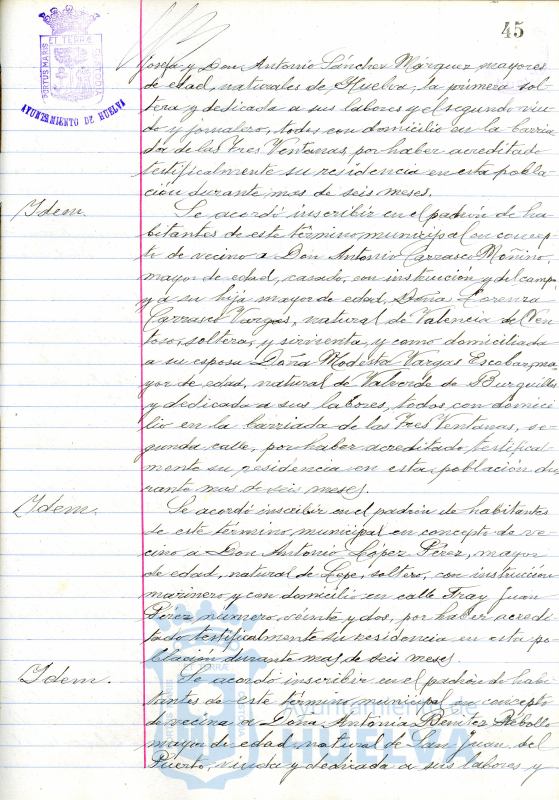 45
PORTUS MARIS ET TERRÆ CUSTODIA
AYUNTAMIENTO DE HUELVA
Josefa y Don Antonio Sánchez Márquez mayores
de edad, naturales de Huelva, la primera sol-
tera y dedicada a sus labores y el segundo viu-
do y jornalero, todos con domicilio en la barria-
da de las Tres Ventanas, por haber acreditado
testificalmente su residencia en esta pobla-
ción durante mas de seis meses.
Idem. Se acordó inscribir en el padrón de ha-
bitantes de este término municipal en concep-
to de vecino a Don Antonio Carrasco Moñino,
mayor de edad, casado, con instrucción y del campo
y a su hija mayor de edad, Doña Lorenza
Carrasco Vargas, natural de Valencia del Ven-
toso, soltera, y sirvienta, y como domiciliada
a su esposa Doña Modesta Vargas Escobar, ma-
yor de edad, natural de Valverde de Burguillos
y dedicada a sus labores, todos con domici-
lio en la barriada de las Tres Ventanas, se-
gunda calle, por haber acreditado testifical-
mente su residencia en esta población du-
rante mas de seis meses.
Idem. Se acordó inscribir en el padrón de habitantes
de este término municipal en concepto de ve-
cino a Don Antonio López Pérez, mayor
de edad, natural de Lepe, soltero, con instrucción
marinero y con domicilio en calle Fray Juan
Pérez número veinte y dos, por haber acredi-
tado testificalmente su residencia en esta po-
blación durante mas de seis meses.
Idem. Se acordó inscribir en el padrón de habi-
tantes de este término municipal en concepto
de vecina a Doña Antonia Benítez Rebollo
mayor de edad, natural de San Juan del
Puerto, viuda y dedicada a sus labores y
Ayuntamiento de
HUELVA